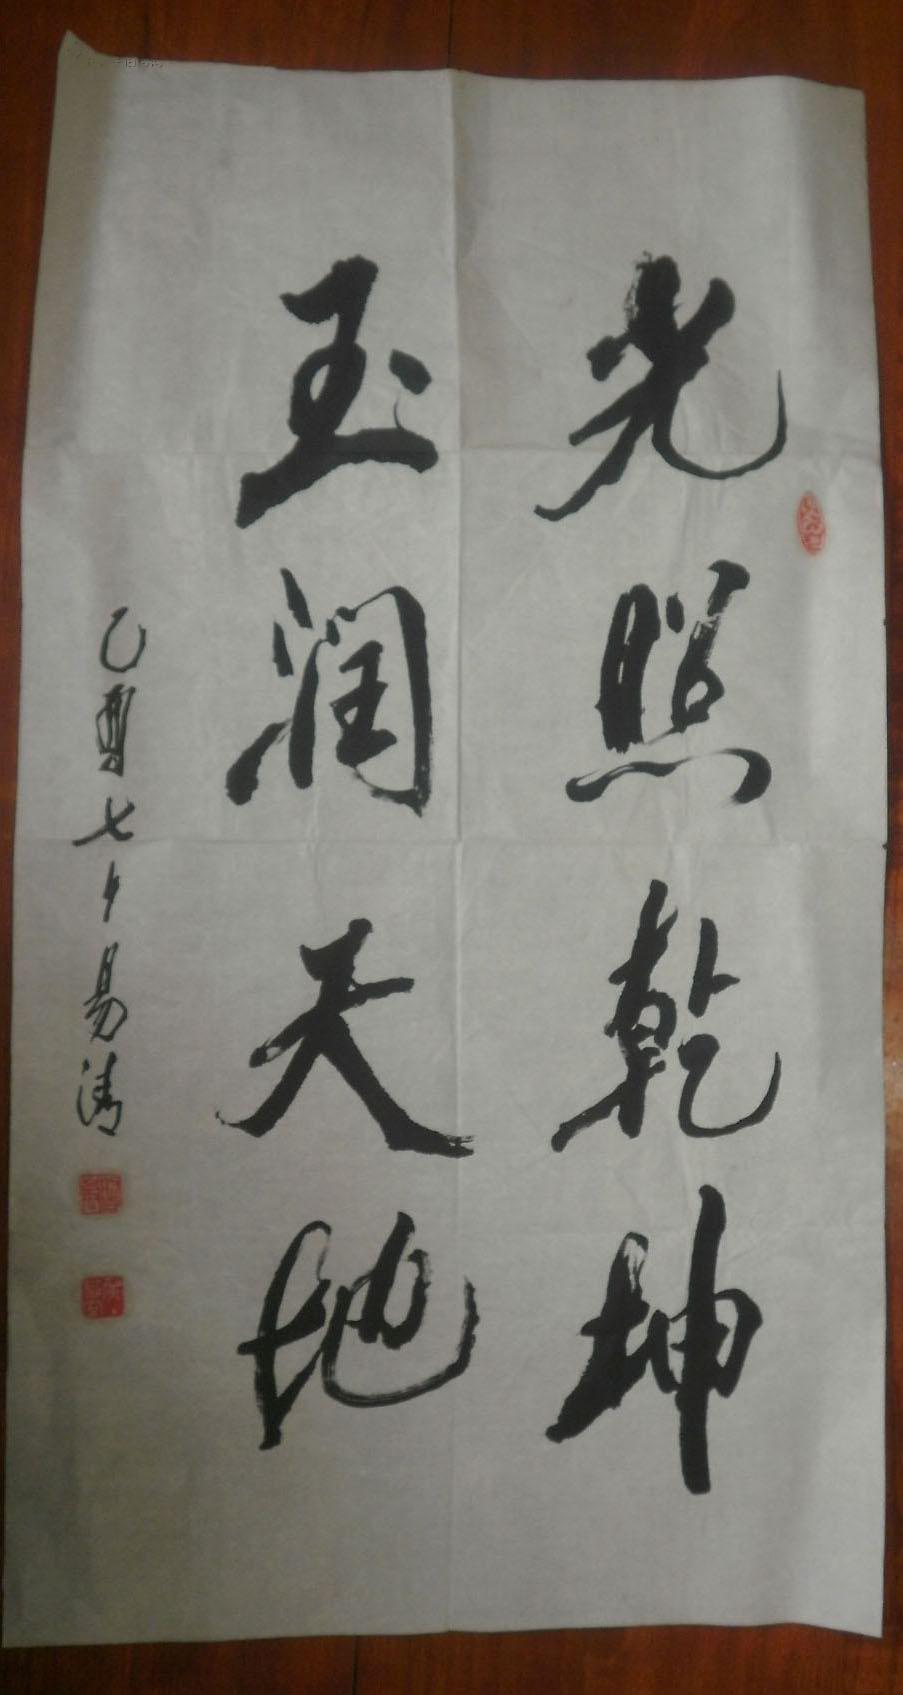 光照乾坤
玉润天地
乙酉七夕易清